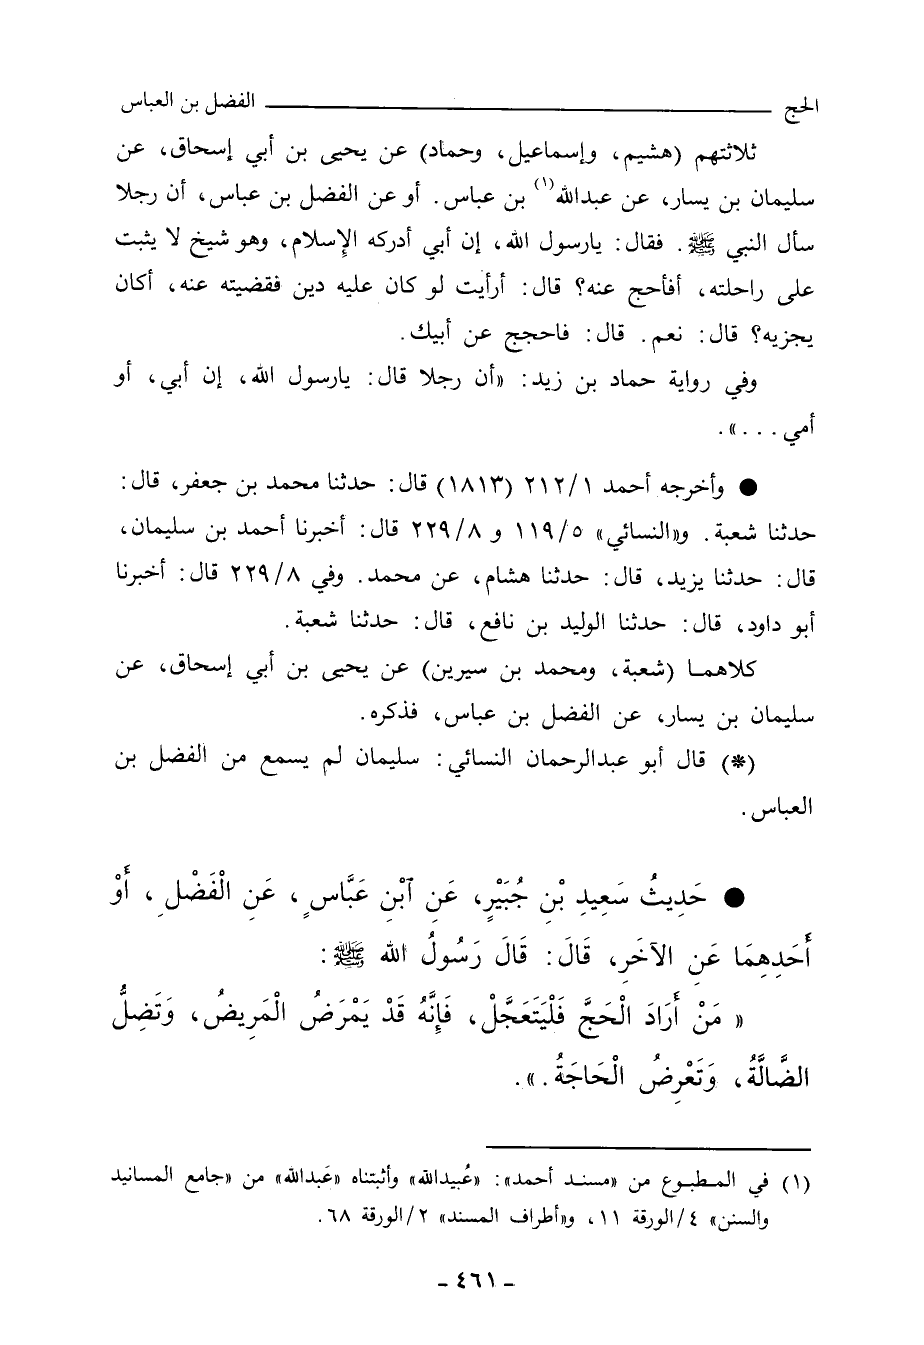 الحج الفضل بن العباس
ثلاثتهم (هشيم، وإسماعيل، وحماد) عن يحيى بن أبي إسحاق، عن
سليمان بن يسار، عن عبدالله(١) بن عباس. أو عن الفضل بن عباس، أن رجلا
سأل النبي ﷺ. فقال: يارسول الله، إن أبي أدركه الإسلام، وهو شيخ لا يثبت
على راحلته، أفأحج عنه؟ قال: أرأيت لو كان عليه دين فقضيته عنه، أكان
يجزيه؟ قال: نعم. قال: فاحجج عن أبيك.
وفي رواية حماد بن زيد: «أن رجلا قال: يارسول الله، إن أبي، أو
أمي . . .».
● وأخرجه أحمد ٢١٢/١ (١٨١٣) قال: حدثنا محمد بن جعفر، قال:
حدثنا شعبة. و«النسائي» ١١٩/٥ و ٢٢٩/٨ قال: أخبرنا أحمد بن سليمان،
قال: حدثنا يزيد، قال: حدثنا هشام، عن محمد. وفي ٢٢٩/٨ قال: أخبرنا
أبو داود، قال: حدثنا الوليد بن نافع، قال: حدثنا شعبة.
كلاهما (شعبة، ومحمد بن سيرين) عن يحيى بن أبي إسحاق، عن
سليمان بن يسار، عن الفضل بن عباس، فذكره.
(*) قال أبو عبدالرحمان النسائي: سليمان لم يسمع من الفضل بن
العباس.
● حَدِيثُ سَعِيدِ بْنِ جُبَيْرٍ، عَنِ ٱبْنِ عَبَّاسٍ، عَنِ الْفَضْلِ، أَوْ
أَحَدِهِمَا عَنِ الآخَرِ، قَالَ: قَالَ رَسُولُ الله ﷺ:
« مَنْ أَرَادَ الْحَجَّ فَلْيَتَعَجَّلْ، فَإِنَّهُ قَدْ يَمْرَضُ الْمَرِيضُ، وَتَضِلُّ
الضَّالَّةُ، وَتَعْرِضُ الْحَاجَةُ.».
(١) في المطبوع من «مسند أحمد»: «عُبيدالله» وأثبتناه «عَبدالله» من «جامع المسانيد
والسنن» ٤/الورقة ١١، و«أطراف المسند» ٢/الورقة ٦٨.
- ٤٦١ -